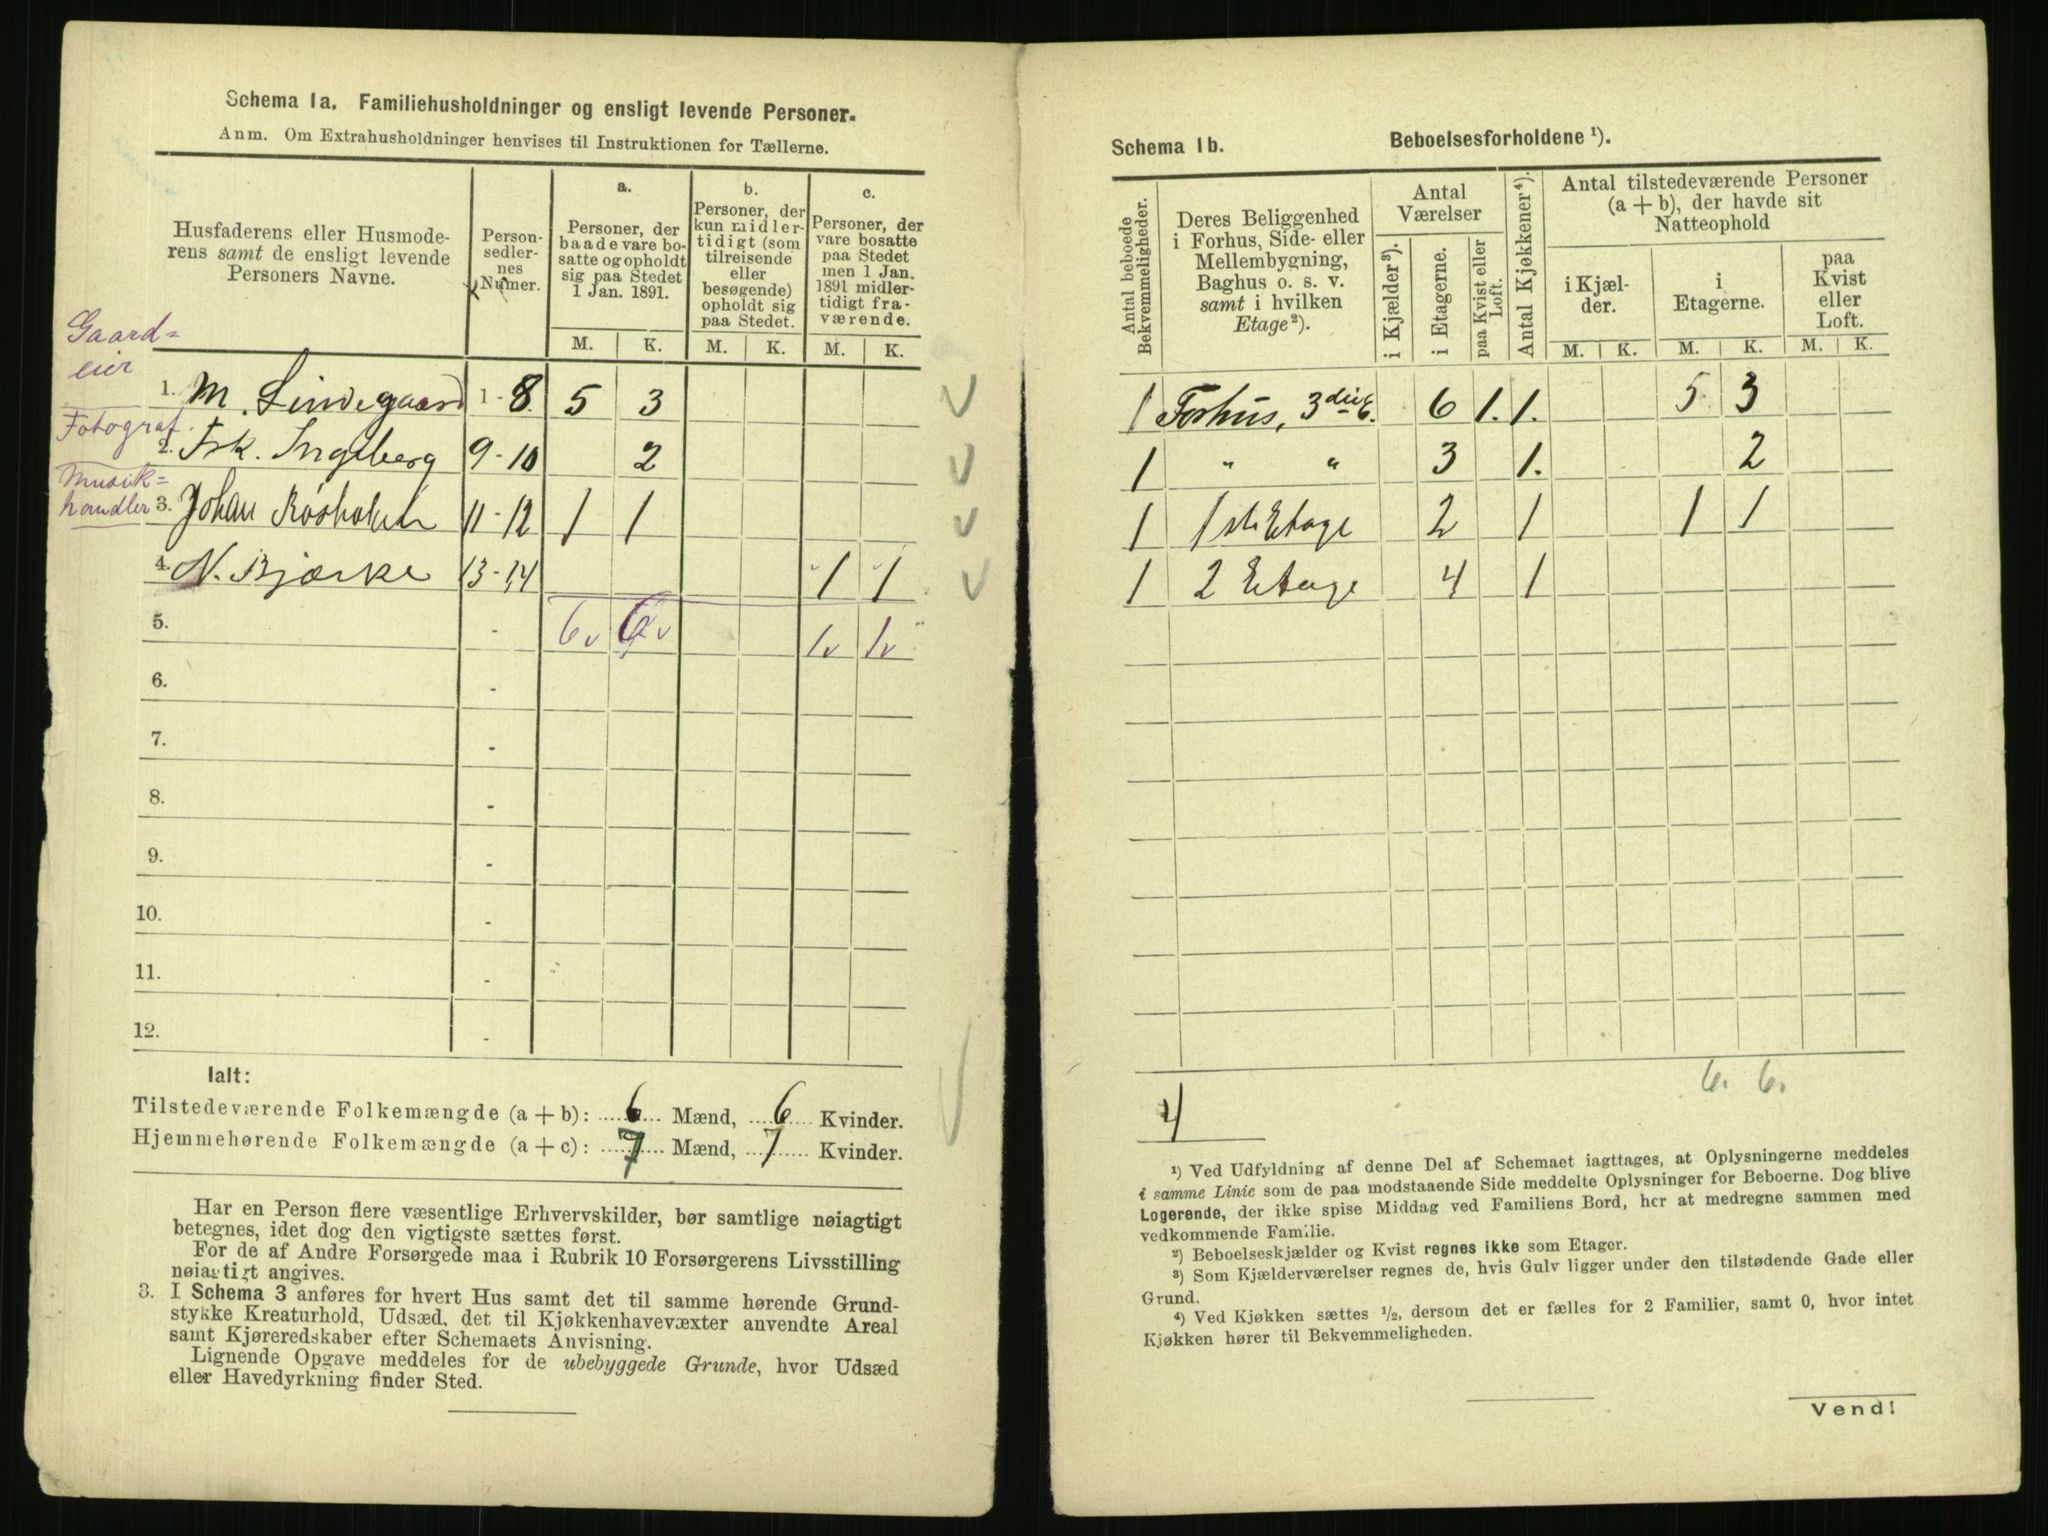 Schema 1a. Familiehusholdninger og ensligt levende Personer.
Anm. Om Extrahusholdninger henvises til Instruktionen for Tællerne.
Husfaderens eller Husmode-
rens samt de ensligt levende
Personers Navne.
Person-
sedler-
nes
Numer.
a.
Personer, der
baade vare bo-
satte og opholdt
sig paa Stedet
1 Jan. 1891.
b.
Personer, der
kun midler-
tidigt (som
tilreisende
eller
besøgende)
opholdt sig
paa Stedet.
c.
Personer, der
vare bosatte
paa Stedet
men 1 Jan.
1891 midler-
tidigt fra-
værende.
M. K. M. K. M. K.
Gaard=
eier
1. M. Lindegaard 1-8 5 3
Fotograf
2. Frk. Ingeberg 9-10 2
Musik=
handler
3. Johan 11-12 1 1
4. N. Bjørke 13-14 1 1
5. - 6v 6v 1v 1v
6. -
7. -
8. -
9. -
10. -
11. -
12. -
Ialt:
Tilstedeværende Folkemængde (a + b): 6 Mænd, 6 Kvinder.
Hjemmehørende Folkemængde (a + c): 7 Mænd, 7 Kvinder.
Har en Person flere væsentlige Erhvervskilder, bør samtlige nøiagtigt
betegnes, idet dog den vigtigste sættes først.
For de af Andre Forsørgede maa i Rubrik 10 Forsørgerens Livsstilling
nøiagtigt angives.
3. I Schema 3 anføres for hvert Hus samt det til samme hørende Grund-
stykke Kreaturhold, Udsæd, det til Kjøkkenhavevæxter anvendte Areal
samt Kjøreredskaber efter Schemaets Anvisning.
Lignende Opgave meddeles for de ubebyggede Grunde, hvor Udsæd
eller Havedyrkning finder Sted.
Schema 1b. Beboelsesforholdene ¹).
Antal beboede
Bekvemmeligheder.
Deres Beliggenhed
i Forhus, Side- eller
Mellembygning,
Baghus o. s. v.
samt i hvilken
Etage²).
Antal
Værelser
i Kjælder³).
i Etagerne.
paa Kvist eller
Loft.
Antal Kjøkkener⁴).
Antal tilstedeværende Personer
(a + b), der havde sit
Natteophold
i Kjæl-
der.
i
Etagerne.
paa
Kvist
eller
Loft.
M. K. M. K. M. K.
1 Forhus, 3die E. 6 1. 1. 5 3
1 " " 3 1. 2
1 1ste Etage 2 1 1 1
1 2 Etage 4 1
6v 6v
4
¹) Ved Udfyldning af denne Del af Schemaet iagttages, at Oplysningerne meddeles
i samme Linie som de paa modstaaende Side meddelte Oplysninger for Beboerne. Dog blive
Logerende, der ikke spise Middag ved Familiens Bord, her at medregne sammen med
vedkommende Familie.
²) Beboelseskjælder og Kvist regnes ikke som Etager.
³) Som Kjælderværelser regnes de, hvis Gulv ligger under den tilstødende Gade eller
Grund.
⁴) Ved Kjøkken sættes ½, dersom det er fælles for 2 Familier, samt 0, hvor intet
Kjøkken hører til Bekvemmeligheden.
Vend!